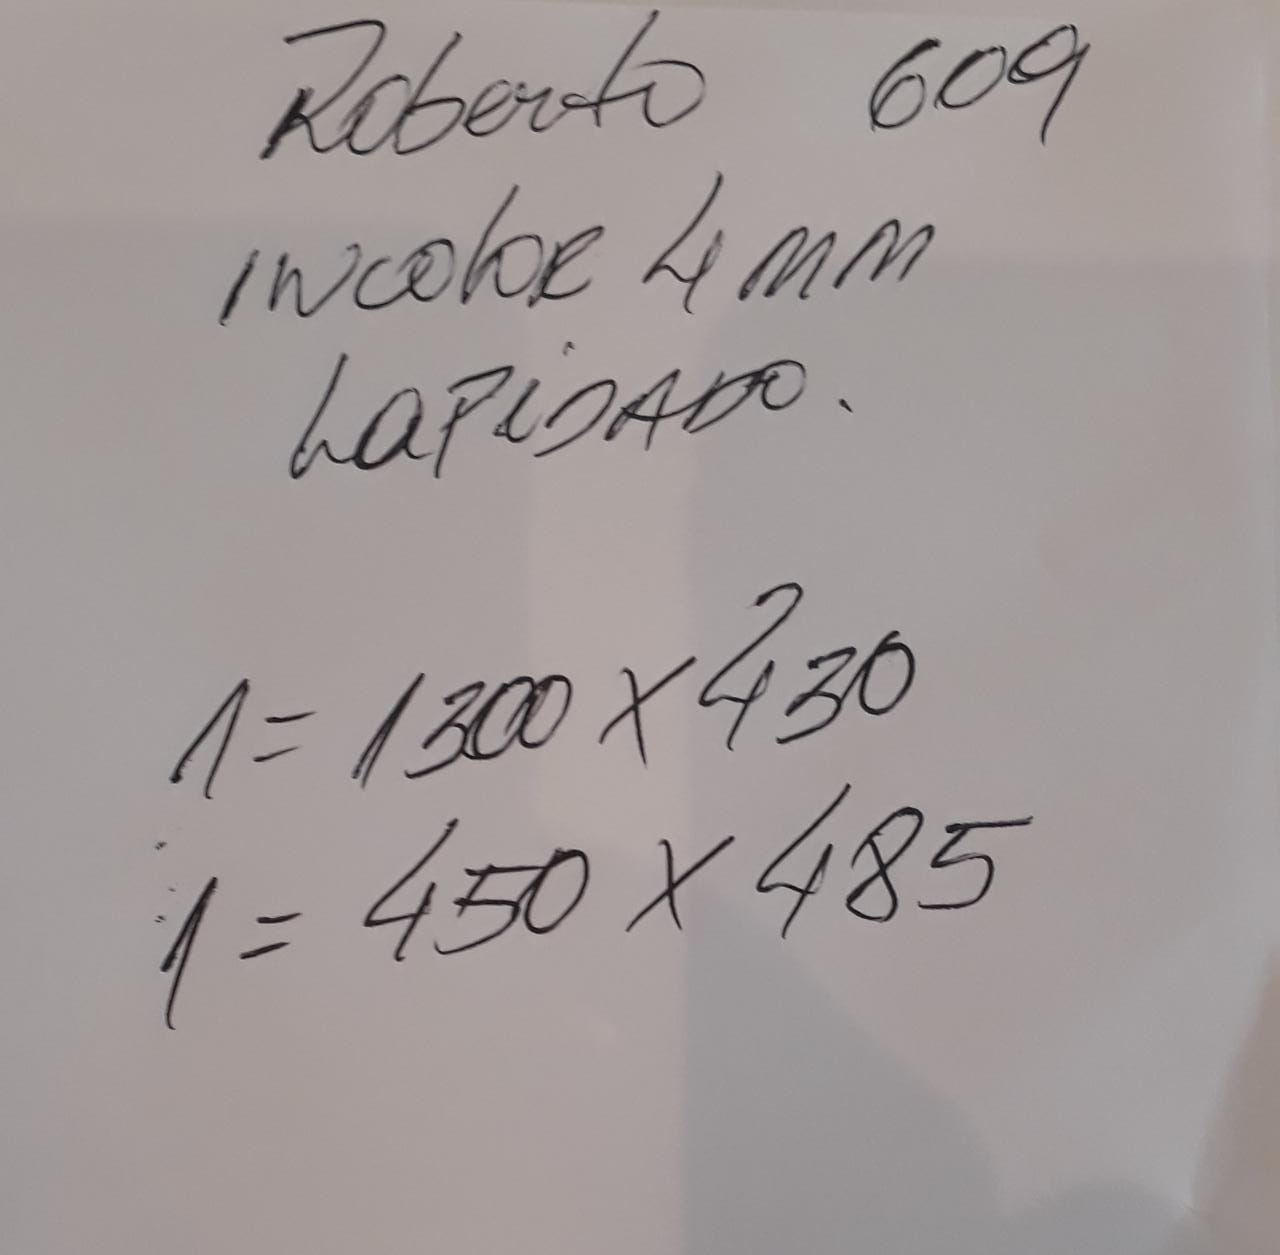 Roberto 609
INCOLOR 4 MM
LAPIDADO.
1 = 1300 X 430
1 = 450 X 485